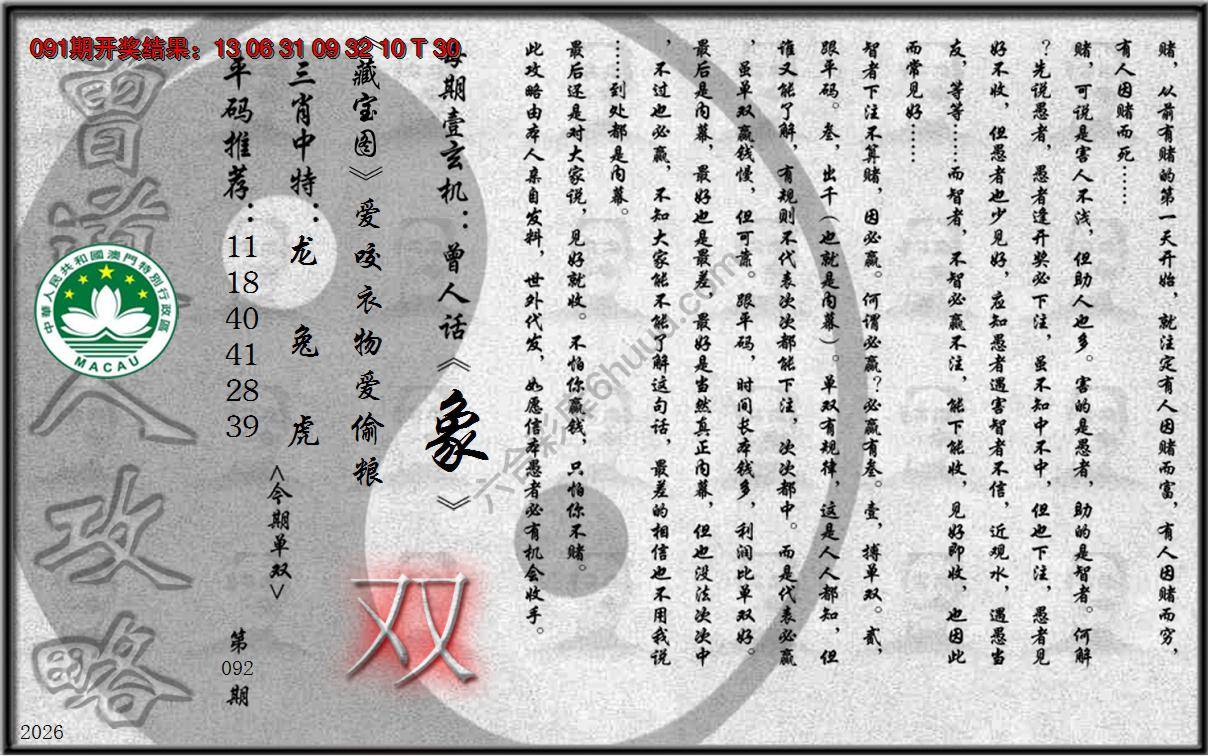 091期开奖结果：13 06 31 09 32 10 T 30
赌，从前有赌的第一天开始，就注定有人因赌而富，有人因赌而穷，
有人因赌而死……
赌，可说是害人不浅，但助人也多。害的是愚者，助的是智者。何解
？先说愚者，愚者逢开奖必下注，虽不知中不中，但也下注，愚者见
好不收，但愚者也少见好，应知愚者遇害智者不信，近观水，遇愚当
友，等等……而智者，不智必赢不注，能下能收，见好即收，也因此
而常见好……
智者下注不算赌，因必赢。何谓必赢？必赢有叁。壹，搏单双。贰，
跟平码。叁，出千（也就是内幕）。单双有规律，这是人人都知，但
谁又能了解，有规则不代表次次都能下注，次次都中。而是代表必赢
，虽单双赢钱慢，但可靠。跟平码，时间长本钱多，利润比单双好。
最后是内幕，最好也是最差，最好是当然真正内幕，但也没法次次中
，不过也必赢，不知大家能不能了解这句话，最差的相信也不用我说
……到处都是内幕。
最后还是对大家说，见好就收。不怕你赢钱，只怕你不赌。
此攻略由本人亲自发料，世外代发，如愿信本愚者必有机会收手。
每期壹玄机：曾人话《象》
《藏宝图》爱咬衣物爱偷粮
三肖中特：龙 兔 虎
平码推荐：11 18 40 41 28 39
<今期单双>
双
第092期
曾道人攻略
中華人民共和國澳門特別行政區
MACAU
六合彩库6huuu.com
2026